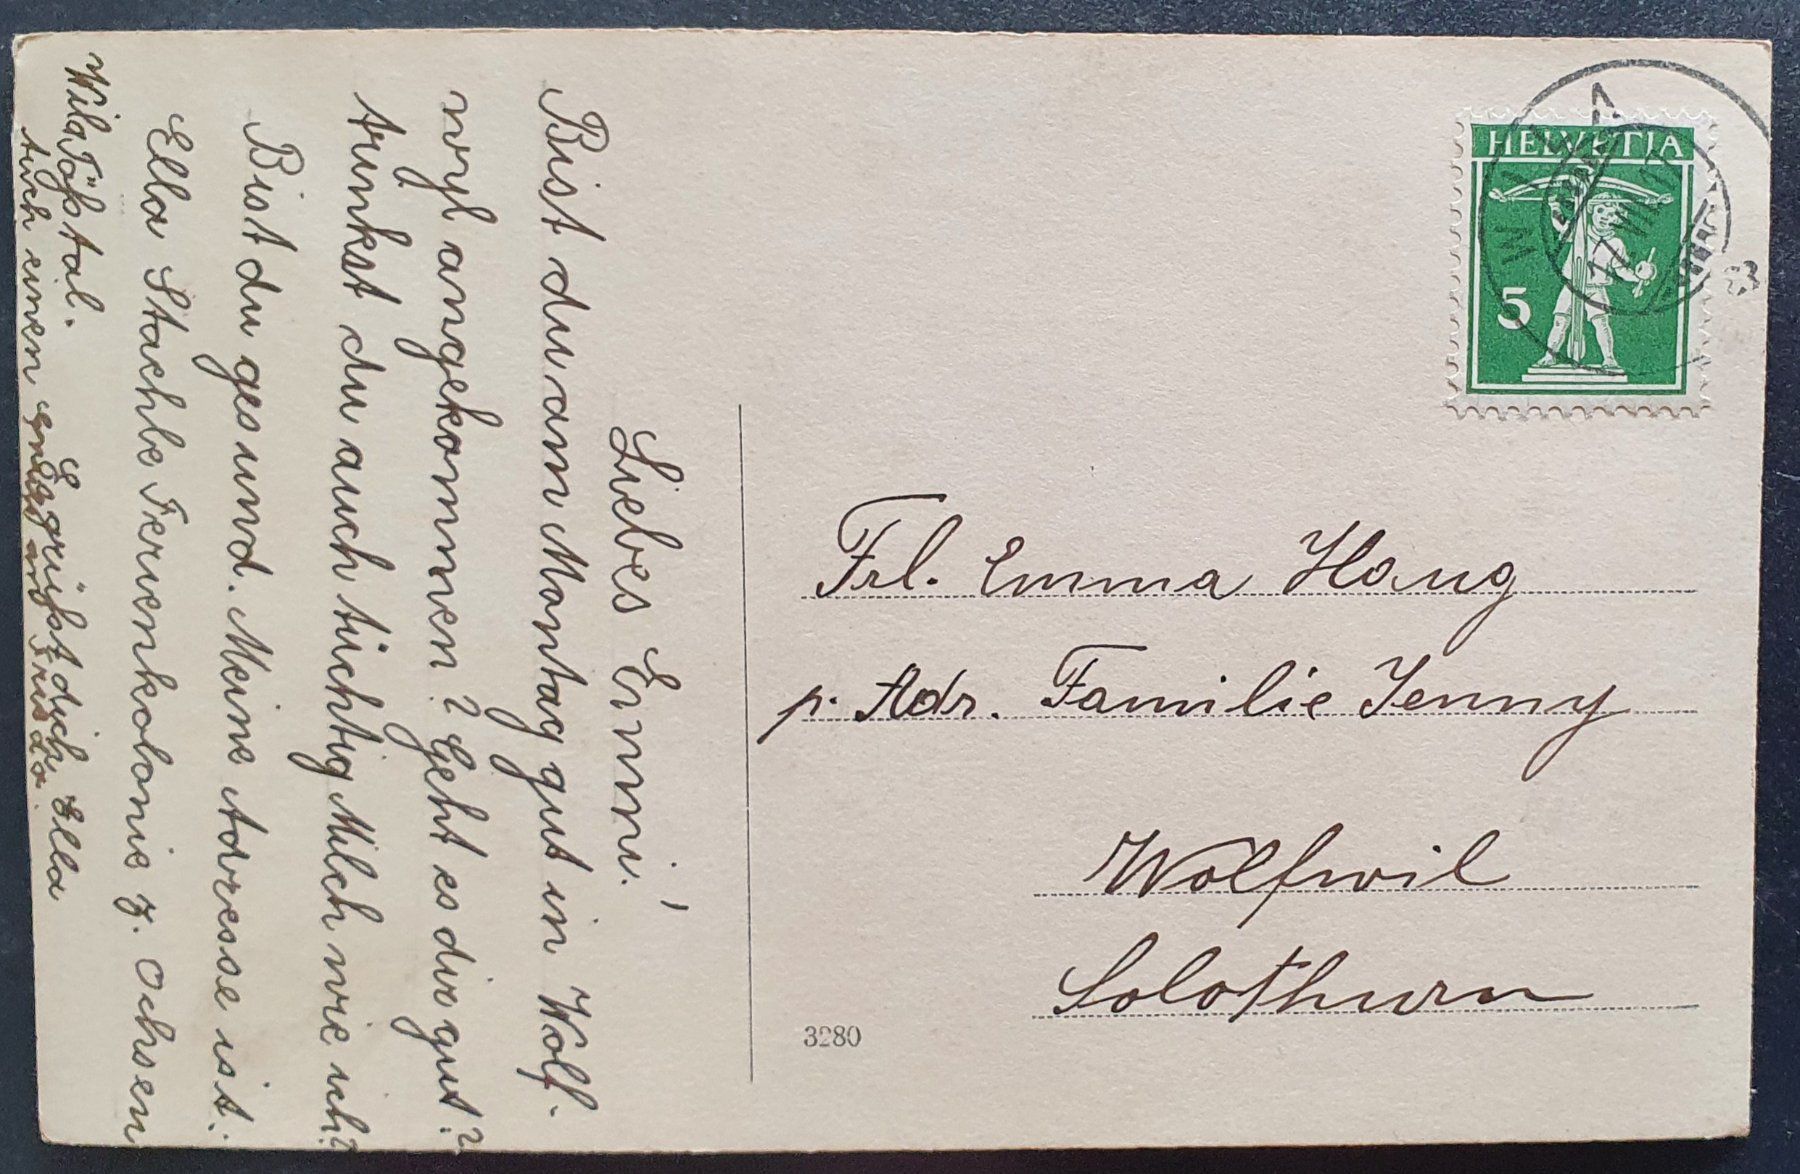 Liebes Emmi!
Bist du am Montag gut in Wolf-
wyl angekommen? Geht es dir gut?
trinkst du auch tüchtig Milch wie ich?
Bist du gesund. Meine Adresse ist:
Ella Stachle Ferienkolonie z. Ochsen
Wila Tößtal.
Es grüßt dich Ella
auch einen
HELVETIA
5
Frl. Emma Haug
p. Adr. Familie Jenny
Wolfwil
Solothurn
3280